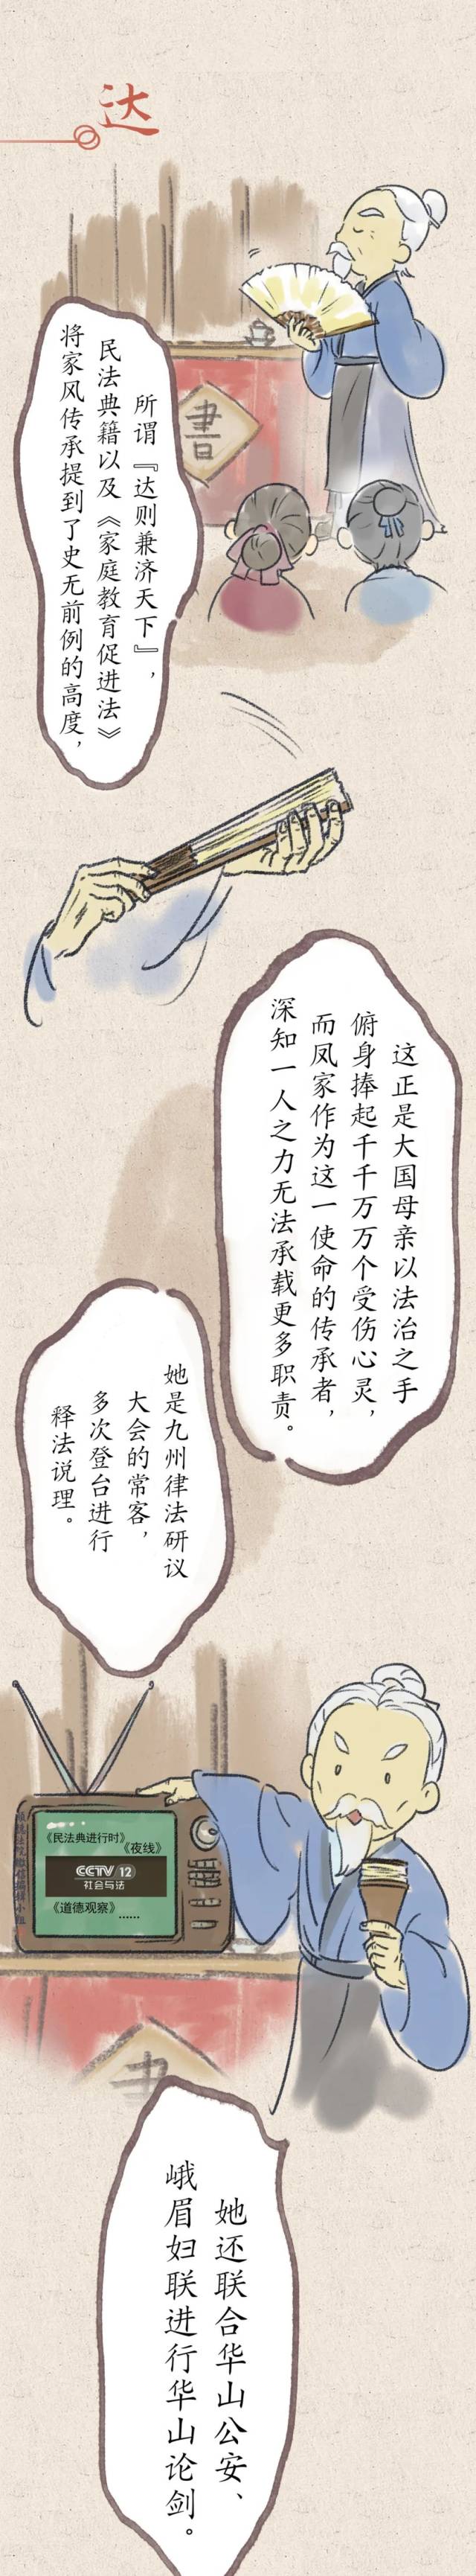 达
書
所谓『达则兼济天下』，
民法典籍以及《家庭教育促进法》
将家风传承提到了史无前例的高度，
这正是大国母亲以法治之手
俯身捧起千千万万个受伤心灵，
而凤家作为这一使命的传承者，
深知一人之力无法承载更多职责。
她是九州律法研议
大会的常客，
多次登台进行
释法说理。
《民法典进行时》
《夜线》
CCTV 12
社会与法
《道德观察》……
書
她还联合华山公安、
峨眉妇联进行华山论剑。